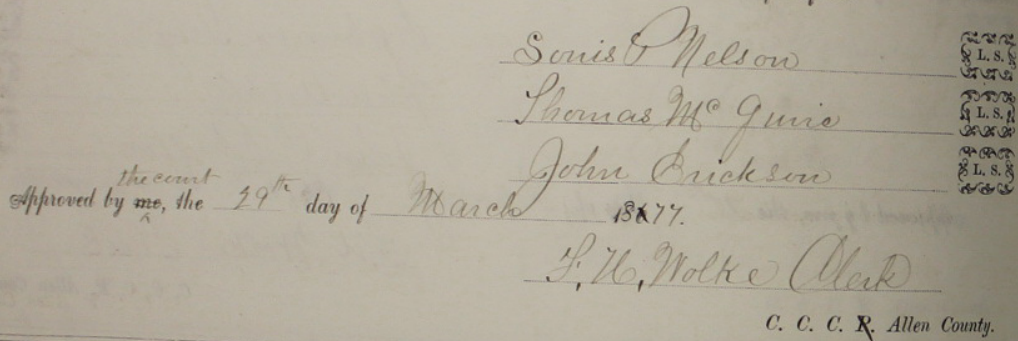 Sonis P Nelson L. S.
Thomas McGuire L. S.
John Erickson L. S.
the court
Approved by me, the 29th day of March 1877.
F. W. Wolke Clerk
C. C. C. P. Allen County.